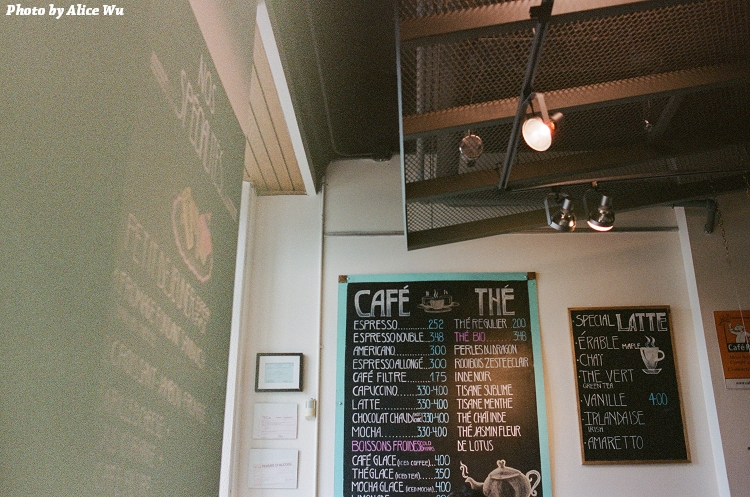 Photo by Alice Wu
NOS
SPÉCIALITÉS
CAFÉ
ESPRESSO 252
ESPRESSO DOUBLE 348
AMERICANO 300
ESPRESSO ALLONGÉ 300
CAFÉ FILTRE 1.75
CAPUCCINO 330-4.00
LATTE 330-4.00
CHOCOLAT CHAUD 330-4.00
MOCHA 330-4.00
BOISSONS FROIDES COLD
CAFÉ GLACÉ (ICED COFFEE) 400
THÉ GLACÉ (ICED TEA) 350
MOCHA GLACÉ (ICED MOCHA) 4.00
THÉ
THÉ RÉGULIER 200
THÉ BIO 348
PERLES DU DRAGON
ROOIBOS ZESTE ÉCLAIR
INDE NOIR
TISANE SUBLIME
TISANE MENTHE
THÉ CHAÏ INDE
THÉ JASMIN FLEUR
DE LOTUS
SPECIAL LATTE
·ÉRABLE MAPLE
·CHAY
·THE VERT
GREEN TEA
·VANILLE 4.00
·IRLANDAISE
IRISH
·AMARETTO
Café